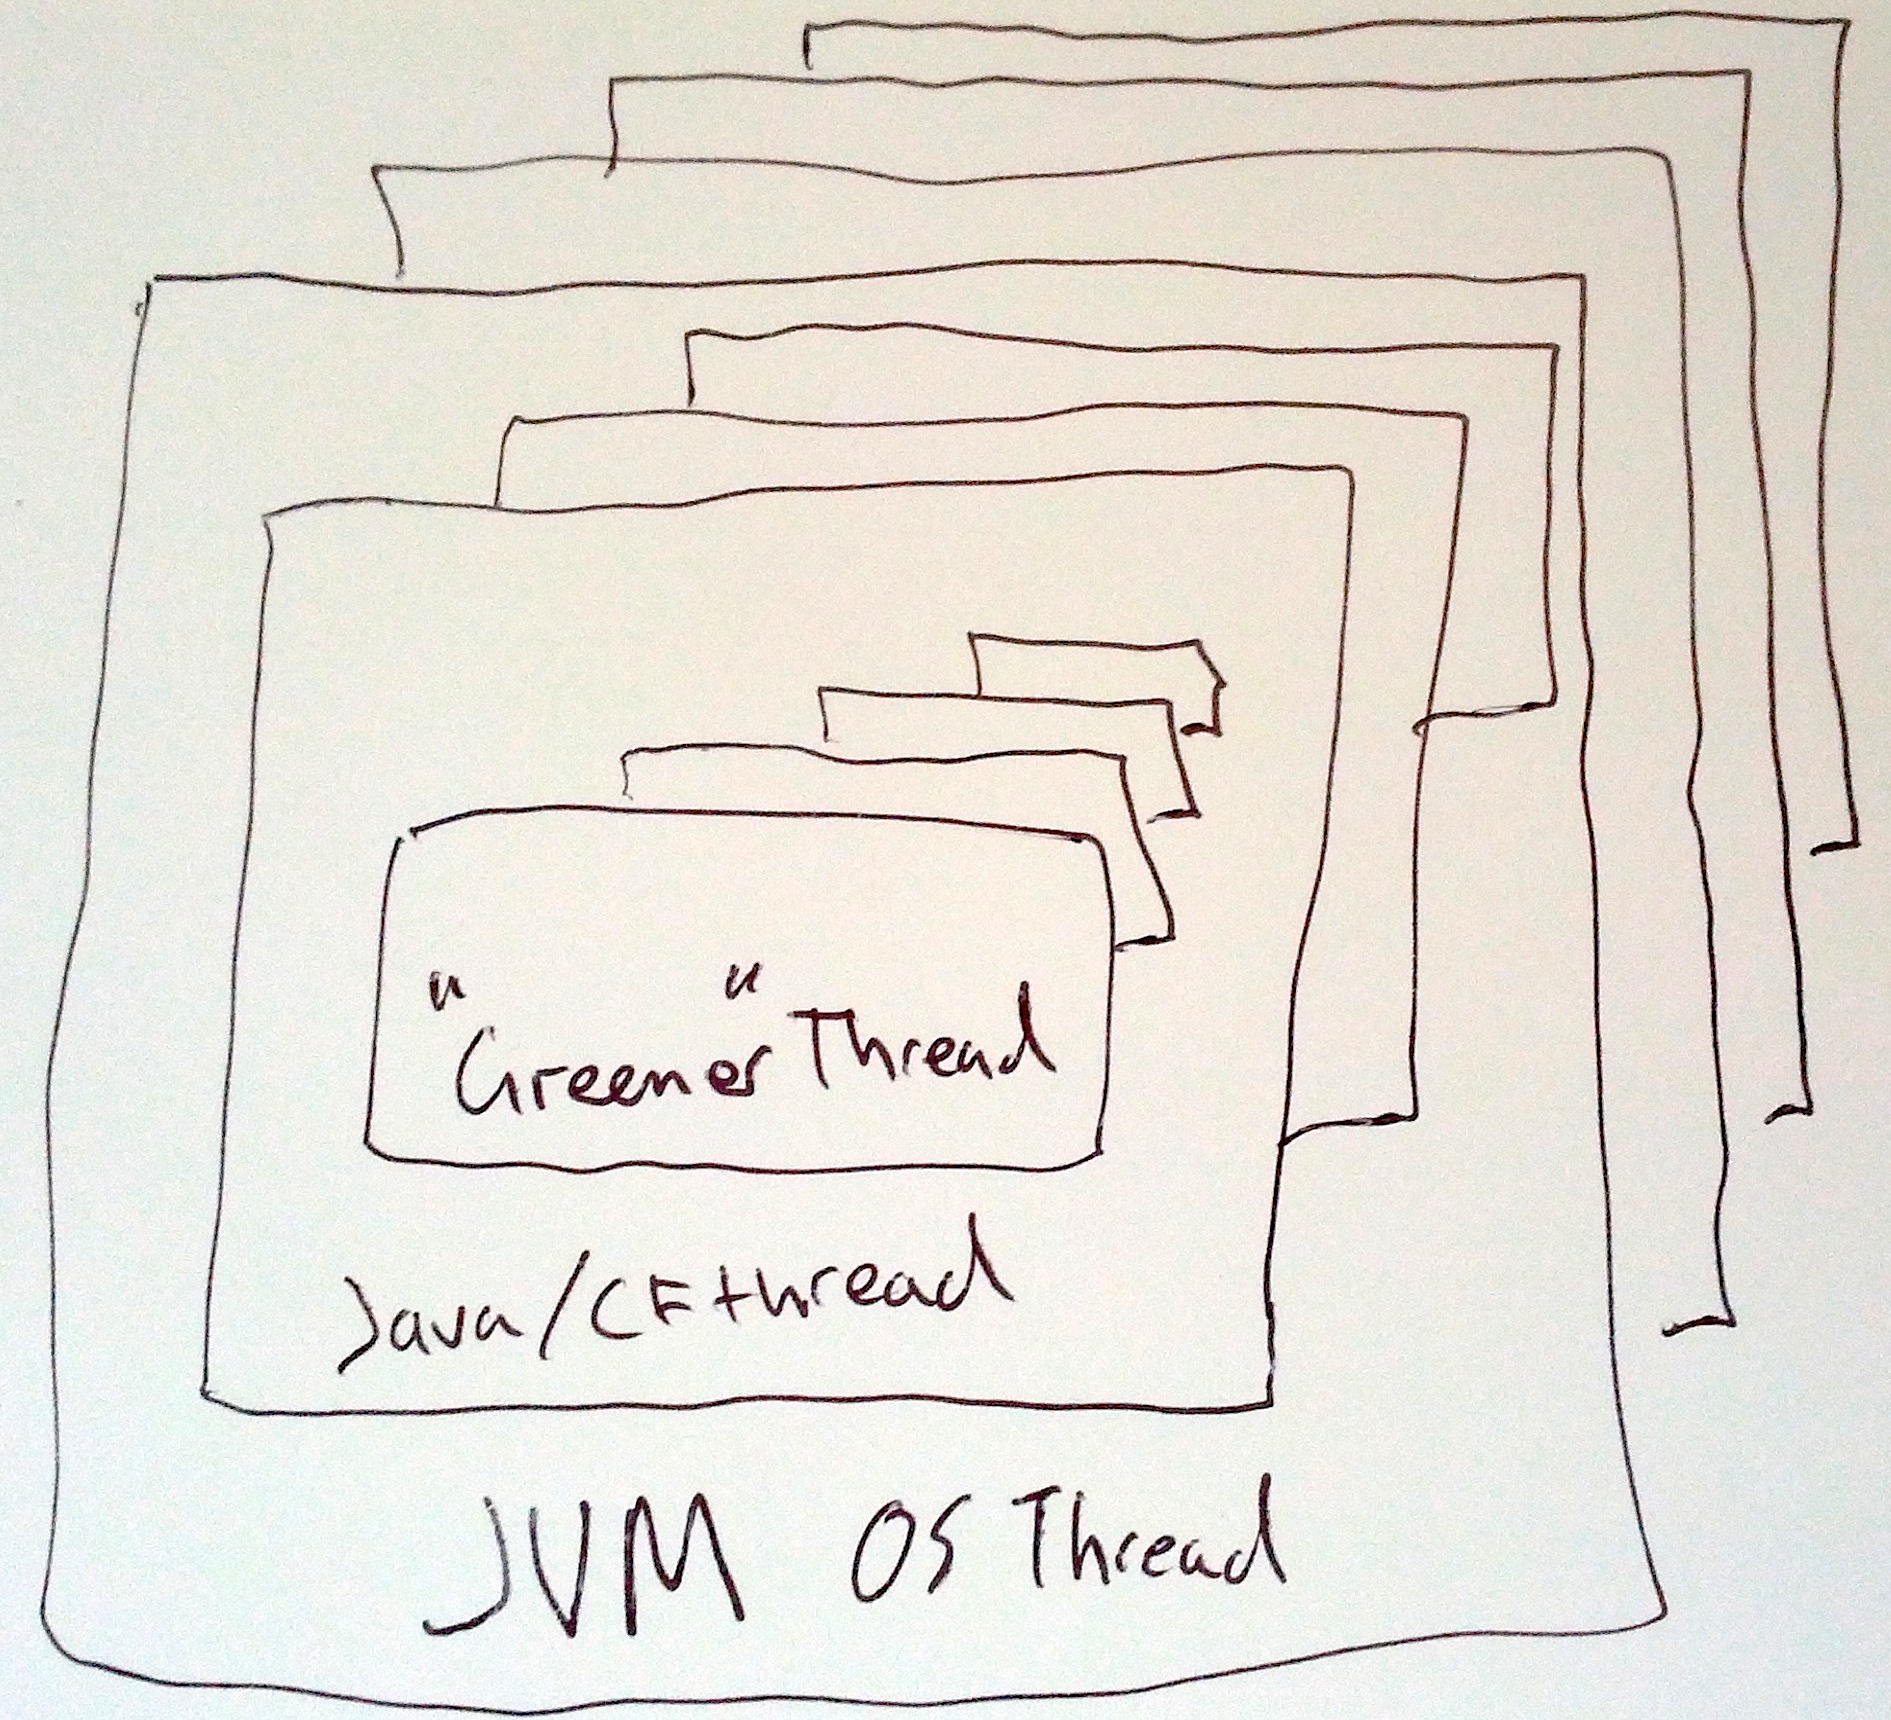 "Greener" Thread
Java/CFthread
JVM OS Thread